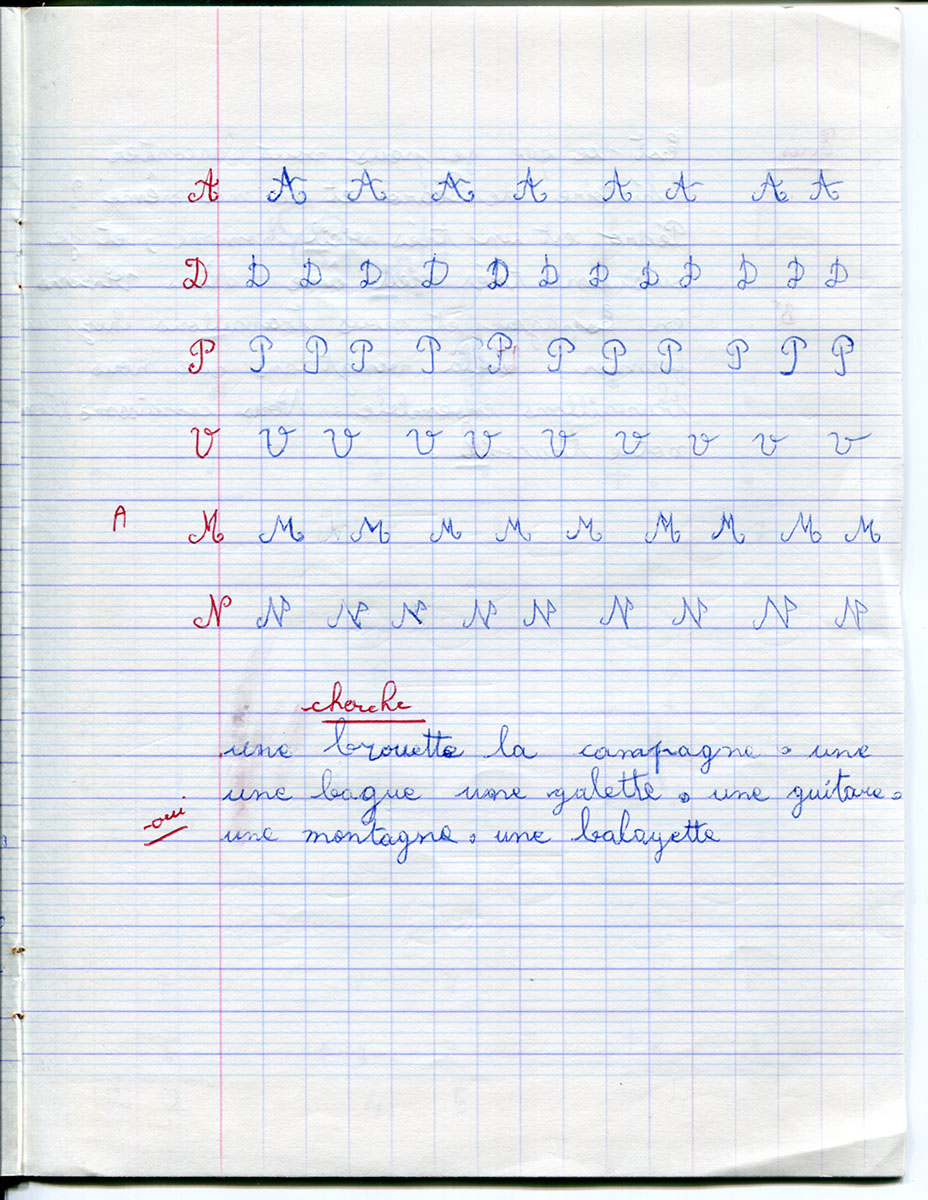 A A A A A A A A A
D D D D D D D D D D D D D
P P P P P P P P P P P P
V V V V V V V V V V
A M M M M M M M M M M
N N N N N N N N N N
cherche
une brouette la campagne. une
une bague une galette. une guitare.
oui une montagne. une balayette